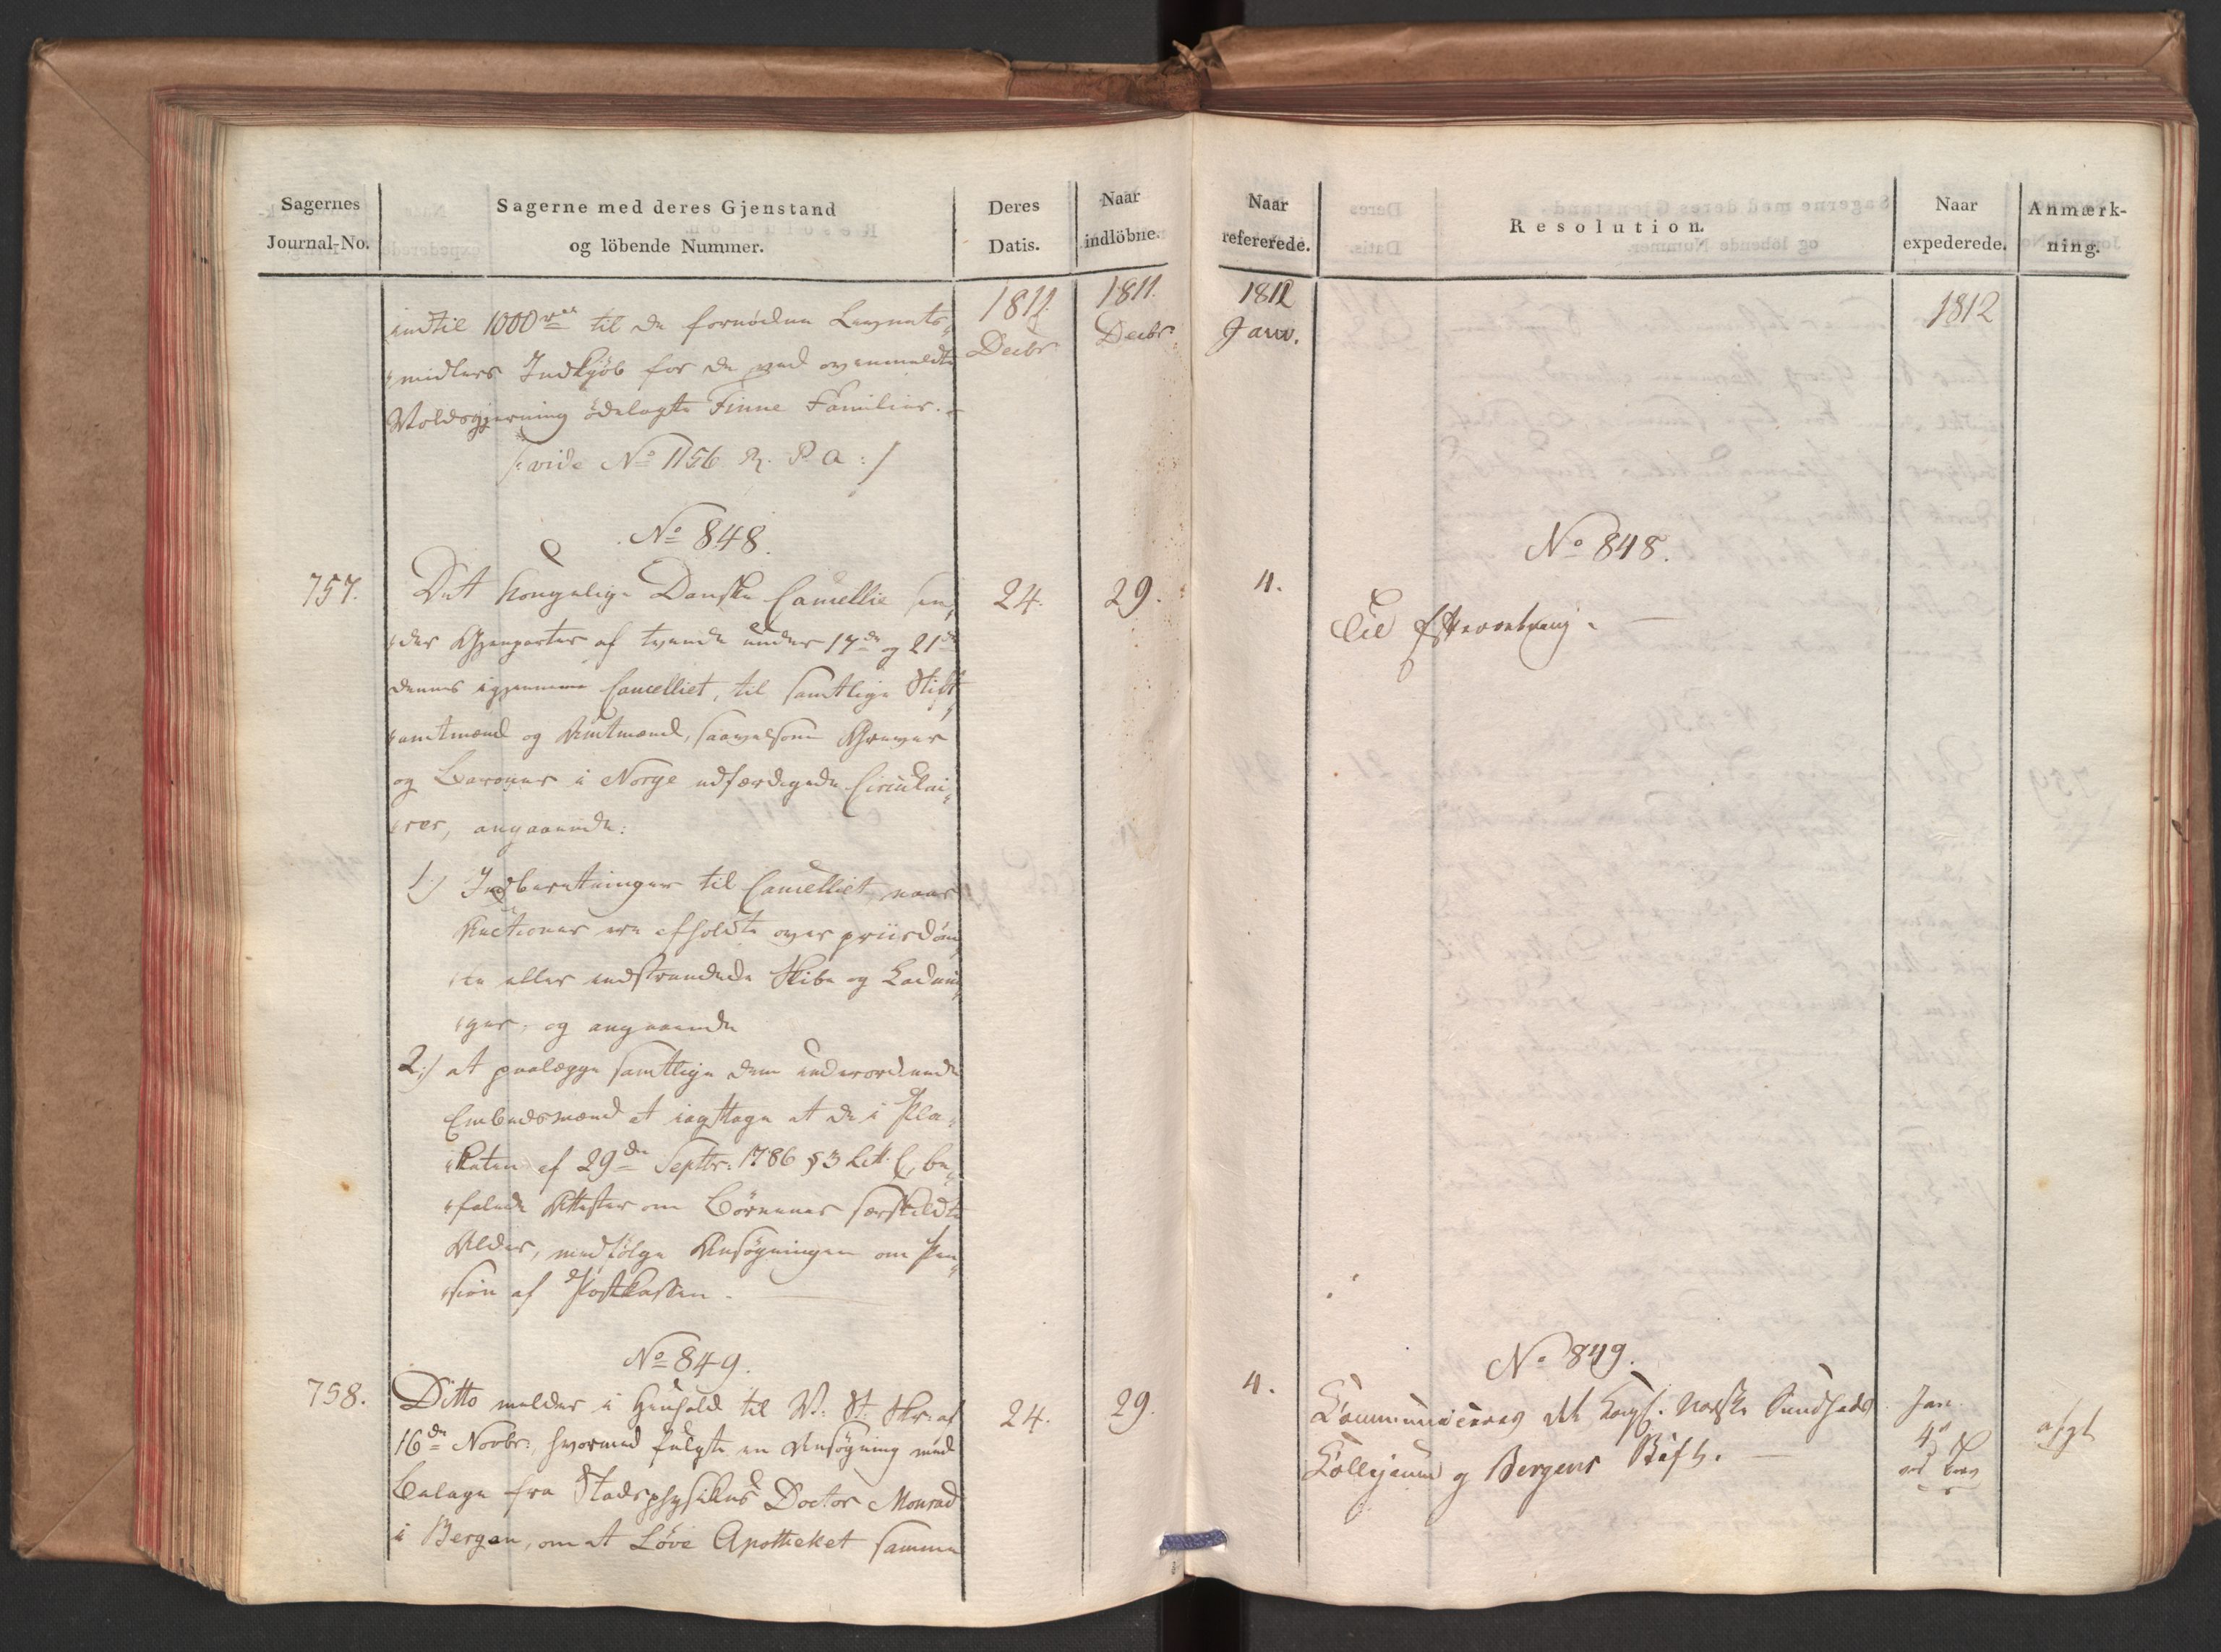 Sagernes
Journal-No.
Sagerne med deres Gjenstand
og löbende Nummer.
Deres
Datis.
Naar
indlöbne.
1811.
Decbr
1811.
Decbr.
indtil 1000 rd til de fornödne Levnets-
midlers Indkjöb for de ved ovenmeldte
Voldsgjerning ödelagte Finne Familier.
/: vide No 1156 R. P. A :/
No 848.
757.
24.
29.
Det Kongelige Danske Cancellie sen-
der Gjenparter af tvende under 17de og 21de
dennes igjennem Cancelliet, til samtlige Stift-
amtmænd og Amtmænd, saavelsom Grever
og Baroner i Norge udfærdigede Circulai-
rer, angaaende:
1.) Indberetninger til Cancelliet, naar
Auctioner ere afholdte over priisdöm-
te eller indstrandede Skibe og Ladnin-
ger, og angaaende
2.) at paalægge samtlige dem underordnede
Embedsmænd at iagttage at de i Pla-
katen af 29de Septbr: 1786 § 3 Litt. C, be-
falede Attester om Börnenes særskildte
Alder, medfölge Ansögningen om Pen-
sion af Postkassen.
No 849.
758.
24.
29.
Ditto melder i Henhold til V: St: Skr: af
16de Novbr:, hvormed fulgte en Ansögning med
Bilage fra Stadsphysikus Doctor Monrad
i Bergen, om at Löve Apotheket samme
Naar
refererede.
Resolution.
Naar
expederede.
Anmærk-
ning.
1812
Janv.
1812
No 848.
4.
Til Efterretning.
No 849.
4.
Communiceres det Kongl. Norske Sundheds
Collegium og Bergens Stift.
Jan.
4de
afgl